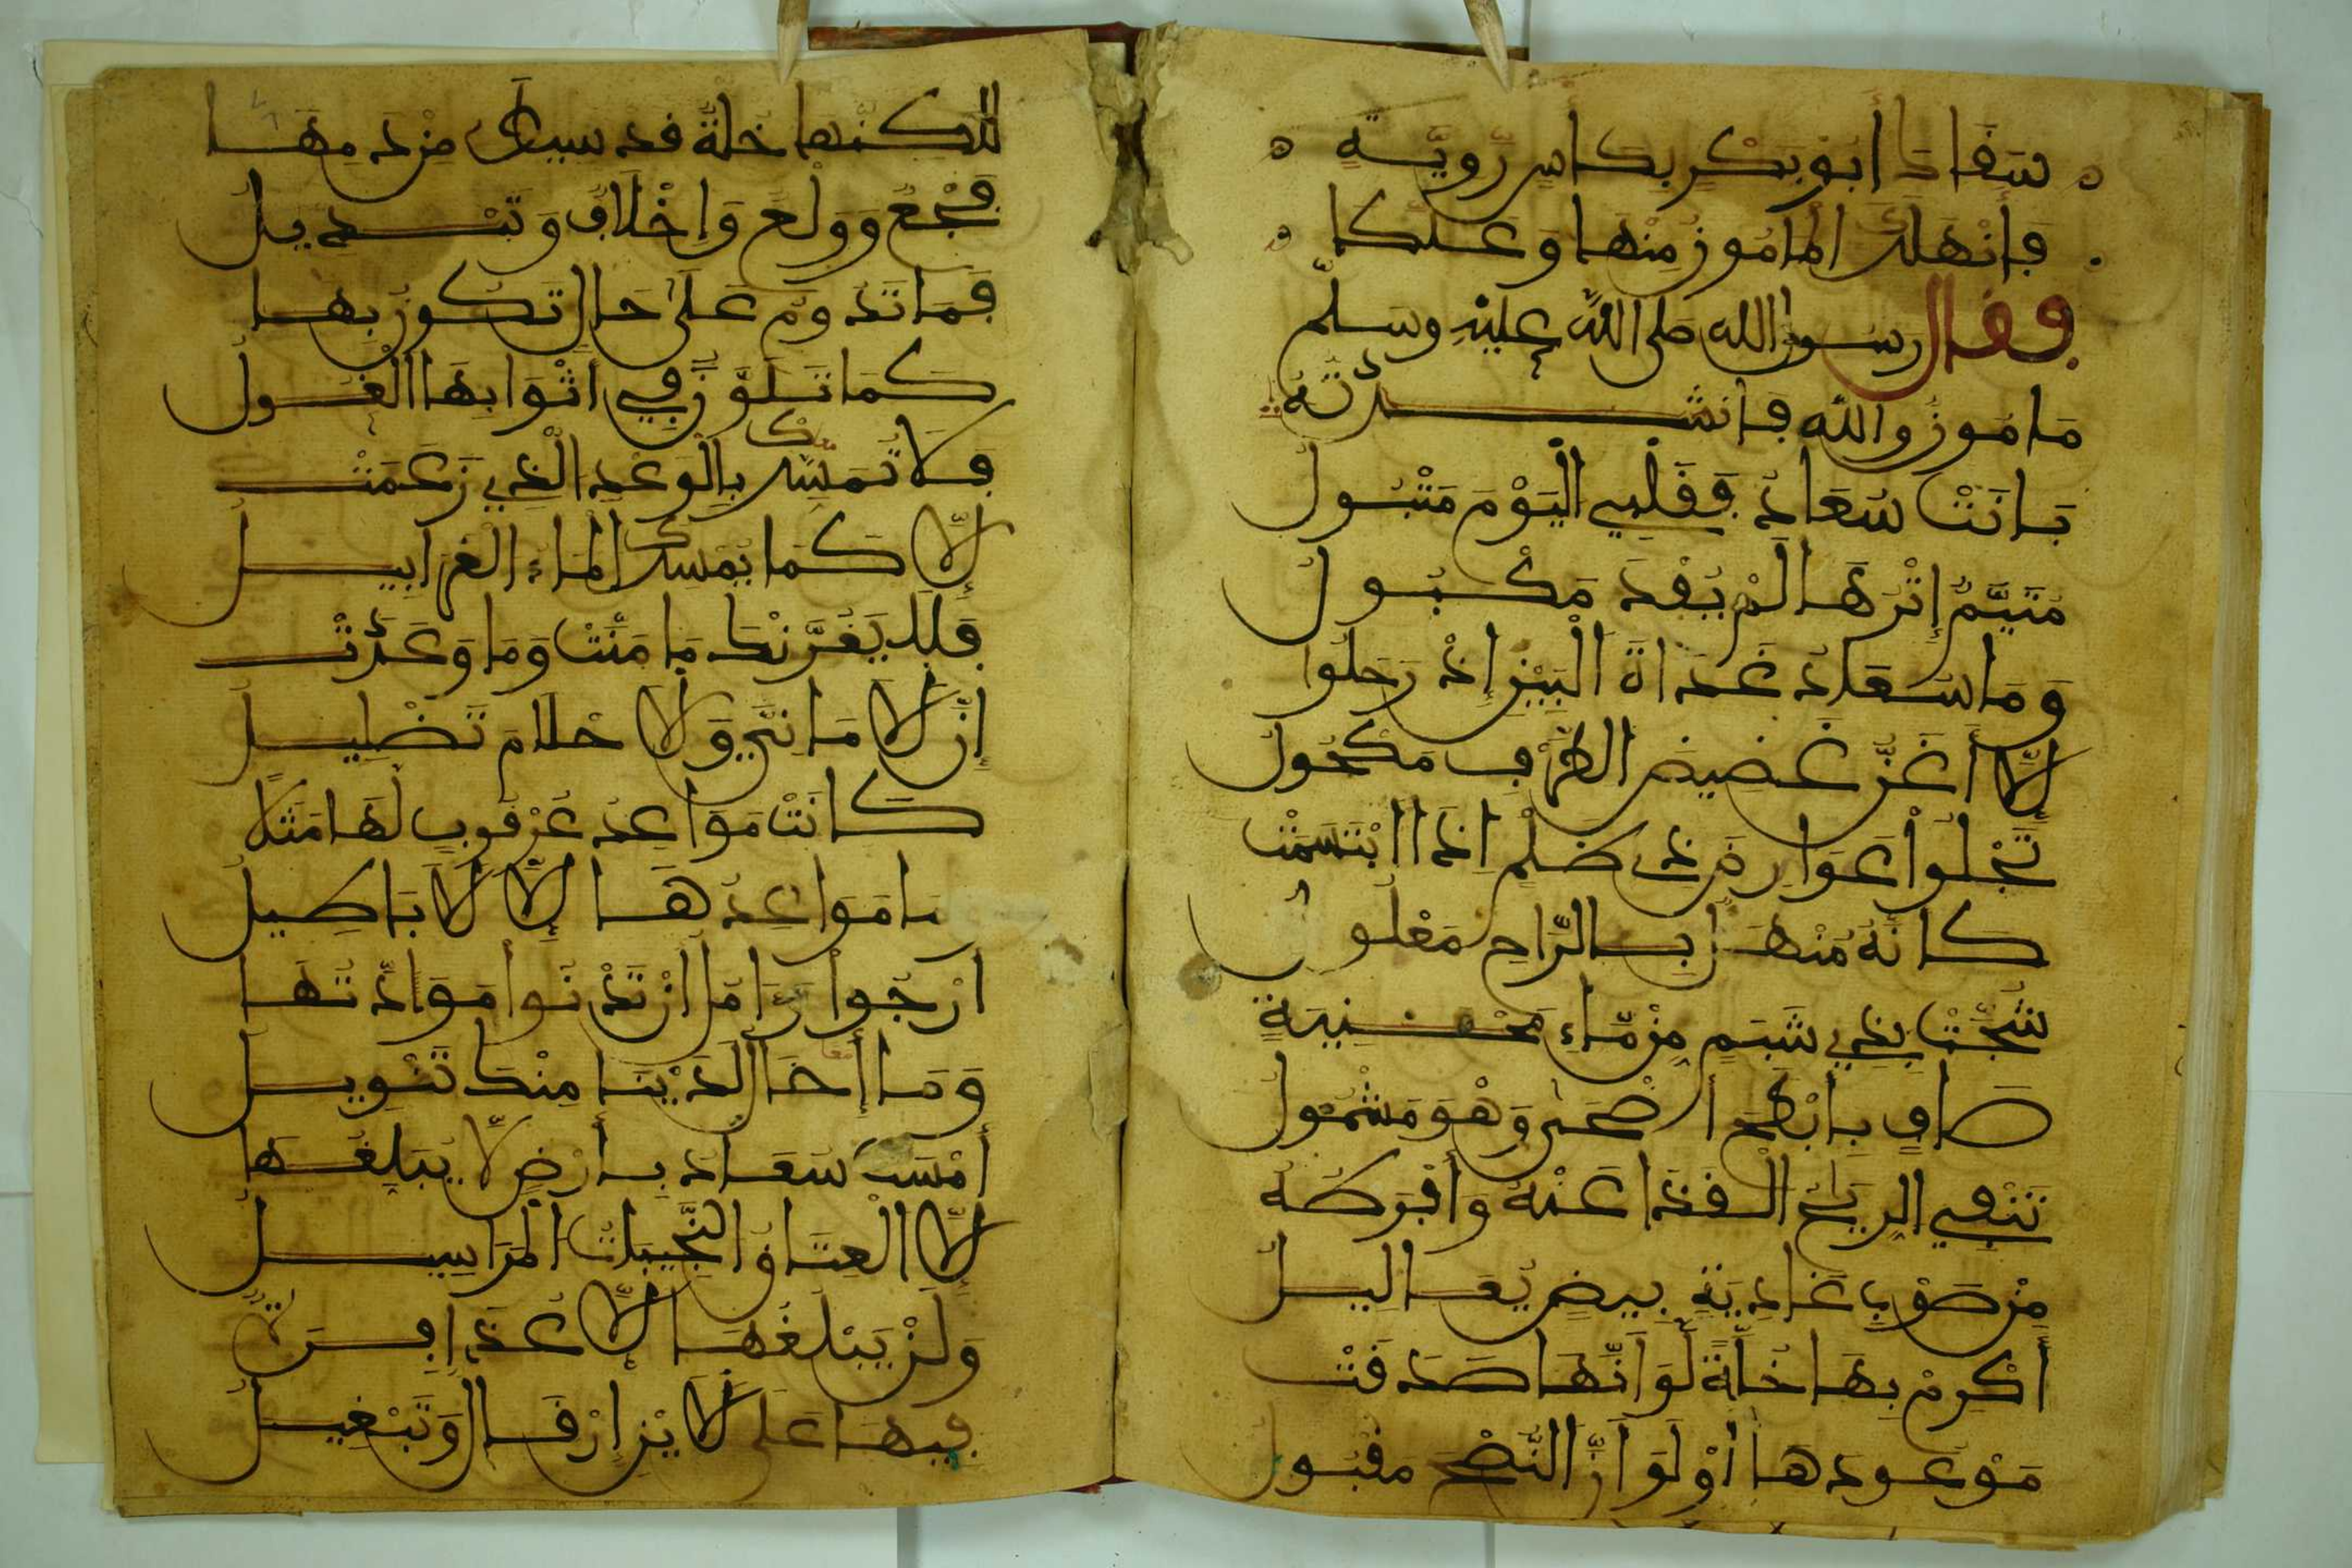 سَقَاكَ أَبُو بَكْرٍ بِكَأْسٍ رَوِيَّةٍ
فَأَنْهَلَكَ الْمَامُورُ مِنْهَا وَعَلَّكَا
فقال رسول الله صلى الله عليه وسلم
مَامُورٌ وَاللهِ فَأَنْشَدْتُهُ
بَانَتْ سُعَادُ فَقَلْبِي الْيَوْمَ مَتْبُولُ
مُتَيَّمٌ إِثْرَهَا لَمْ يُفْدَ مَكْبُولُ
وَمَا سُعَادُ غَدَاةَ الْبَيْنِ إِذْ رَحَلُوا
إِلَّا أَغَنُّ غَضِيضُ الطَّرْفِ مَكْحُولُ
تَجْلُوا عَوَارِضَ ذِي ظَلْمٍ إِذَا ابْتَسَمَتْ
كَأَنَّهُ مُنْهَلٌ بِالرَّاحِ مَعْلُولُ
شُجَّتْ بِذِي شَبَمٍ مِنْ مَاءِ مَحْنِيَةٍ
صَافٍ بِأَبْطَحَ أَضْحَى وَهْوَ مَشْمُولُ
تَنْفِي الرِّيَاحُ الْقَذَا عَنْهُ وَأَفْرَطَهُ
مِنْ صَوْبِ غَادِيَةٍ بِيضٍ يَعَالِيلُ
أَكْرِمْ بِهَا خُلَّةً لَوْ أَنَّهَا صَدَقَتْ
مَوْعُودَهَا أَوْ لَوَ أَنَّ النُّصْحَ مَقْبُولُ
لَكِنَّهَا خُلَّةٌ قَدْ سِيطَ مِنْ دَمِهَا
فَجْعٌ وَوَلْعٌ وَإِخْلَافٌ وَتَبْدِيلُ
فَمَا تَدُومُ عَلَى حَالٍ تَكُونُ بِهَا
كَمَا تَلَوَّنُ فِي أَثْوَابِهَا الْغُولُ
فَلَا تُمَسِّكُ بِالْوَعْدِ الَّذِي زَعَمَتْ
إِلَّا كَمَا يُمْسِكُ الْمَاءَ الْغَرَابِيلُ
فَلَا يَغُرَّنْكَ مَا مَنَّتْ وَمَا وَعَدَتْ
إِنَّ الْأَمَانِيَّ وَالْأَحْلَامَ تَضْلِيلُ
كَانَتْ مَوَاعِدُ عُرْقُوبٍ لَهَا مَثَلًا
مَا مَوَاعِدُهَا إِلَّا الْأَبَاطِيلُ
أَرْجُوا وَآمُلُ أَنْ تَدْنُوا مَوَدَّتُهَا
وَمَا إِخَالُ لَدَيْنَا مِنْكَ تَنْوِيلُ
أَمْسَتْ سُعَادُ بِأَرْضٍ لَا يُبَلِّغُهَا
إِلَّا الْعِتَاقُ النَّجِيبَاتُ الْمَرَاسِيلُ
وَلَنْ يُبَلِّغَهَا إِلَّا عُذَافِرَةٌ
فِيهَا عَلَى الْأَيْنِ إِرْقَالٌ وَتَبْغِيلُ